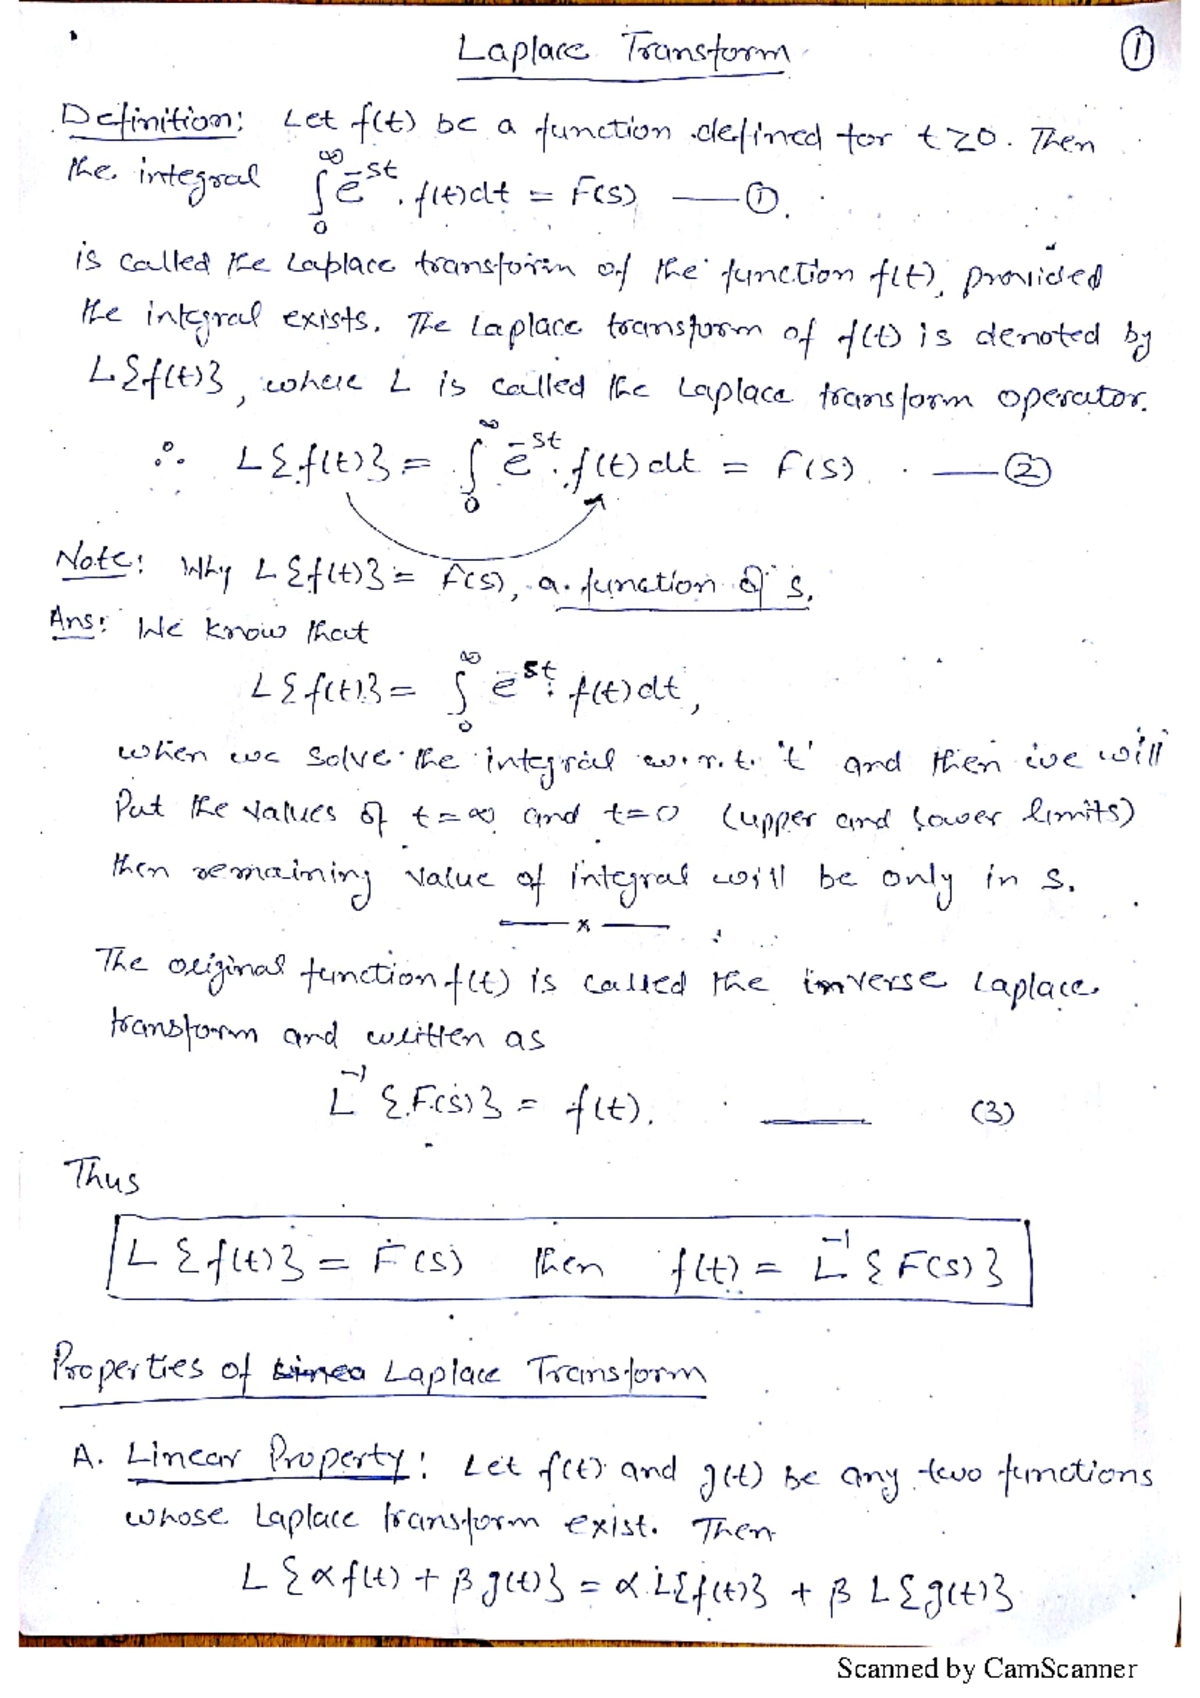 Laplace Transform ①
Definition: Let f(t) be a function defined for t ≥ 0. Then
the integral ∫₀^∞ e^{-st} . f(t)dt = F(s) —— ①.
is called the Laplace transform of the function f(t), provided
the integral exists. The Laplace transform of f(t) is denoted by
L{f(t)}, where L is called the Laplace transform operator.
∴ L{f(t)} = ∫₀^∞ e^{-st} . f(t) dt = F(s) . —— ②
Note: Why L{f(t)} = F(s), a function of s.
Ans: We know that
L{f(t)} = ∫₀^∞ e^{-st} . f(t) dt,
when we solve the integral w.r.t. 't' and then we will
Put the values of t=∞ and t=0 (upper and lower limits)
then remaining value of integral will be only in s.
—— x ——
The original function f(t) is called the inverse Laplace
transform and written as
L^{-1} {F(s)} = f(t). —— (3)
Thus
L{f(t)} = F(s) then f(t) = L^{-1} {F(s)}
Properties of Linea Laplace Transform
A. Linear Property: Let f(t) and g(t) be any two functions
whose Laplace transform exist. Then
L{αf(t) + βg(t)} = α L{f(t)} + β L{g(t)}
Scanned by CamScanner